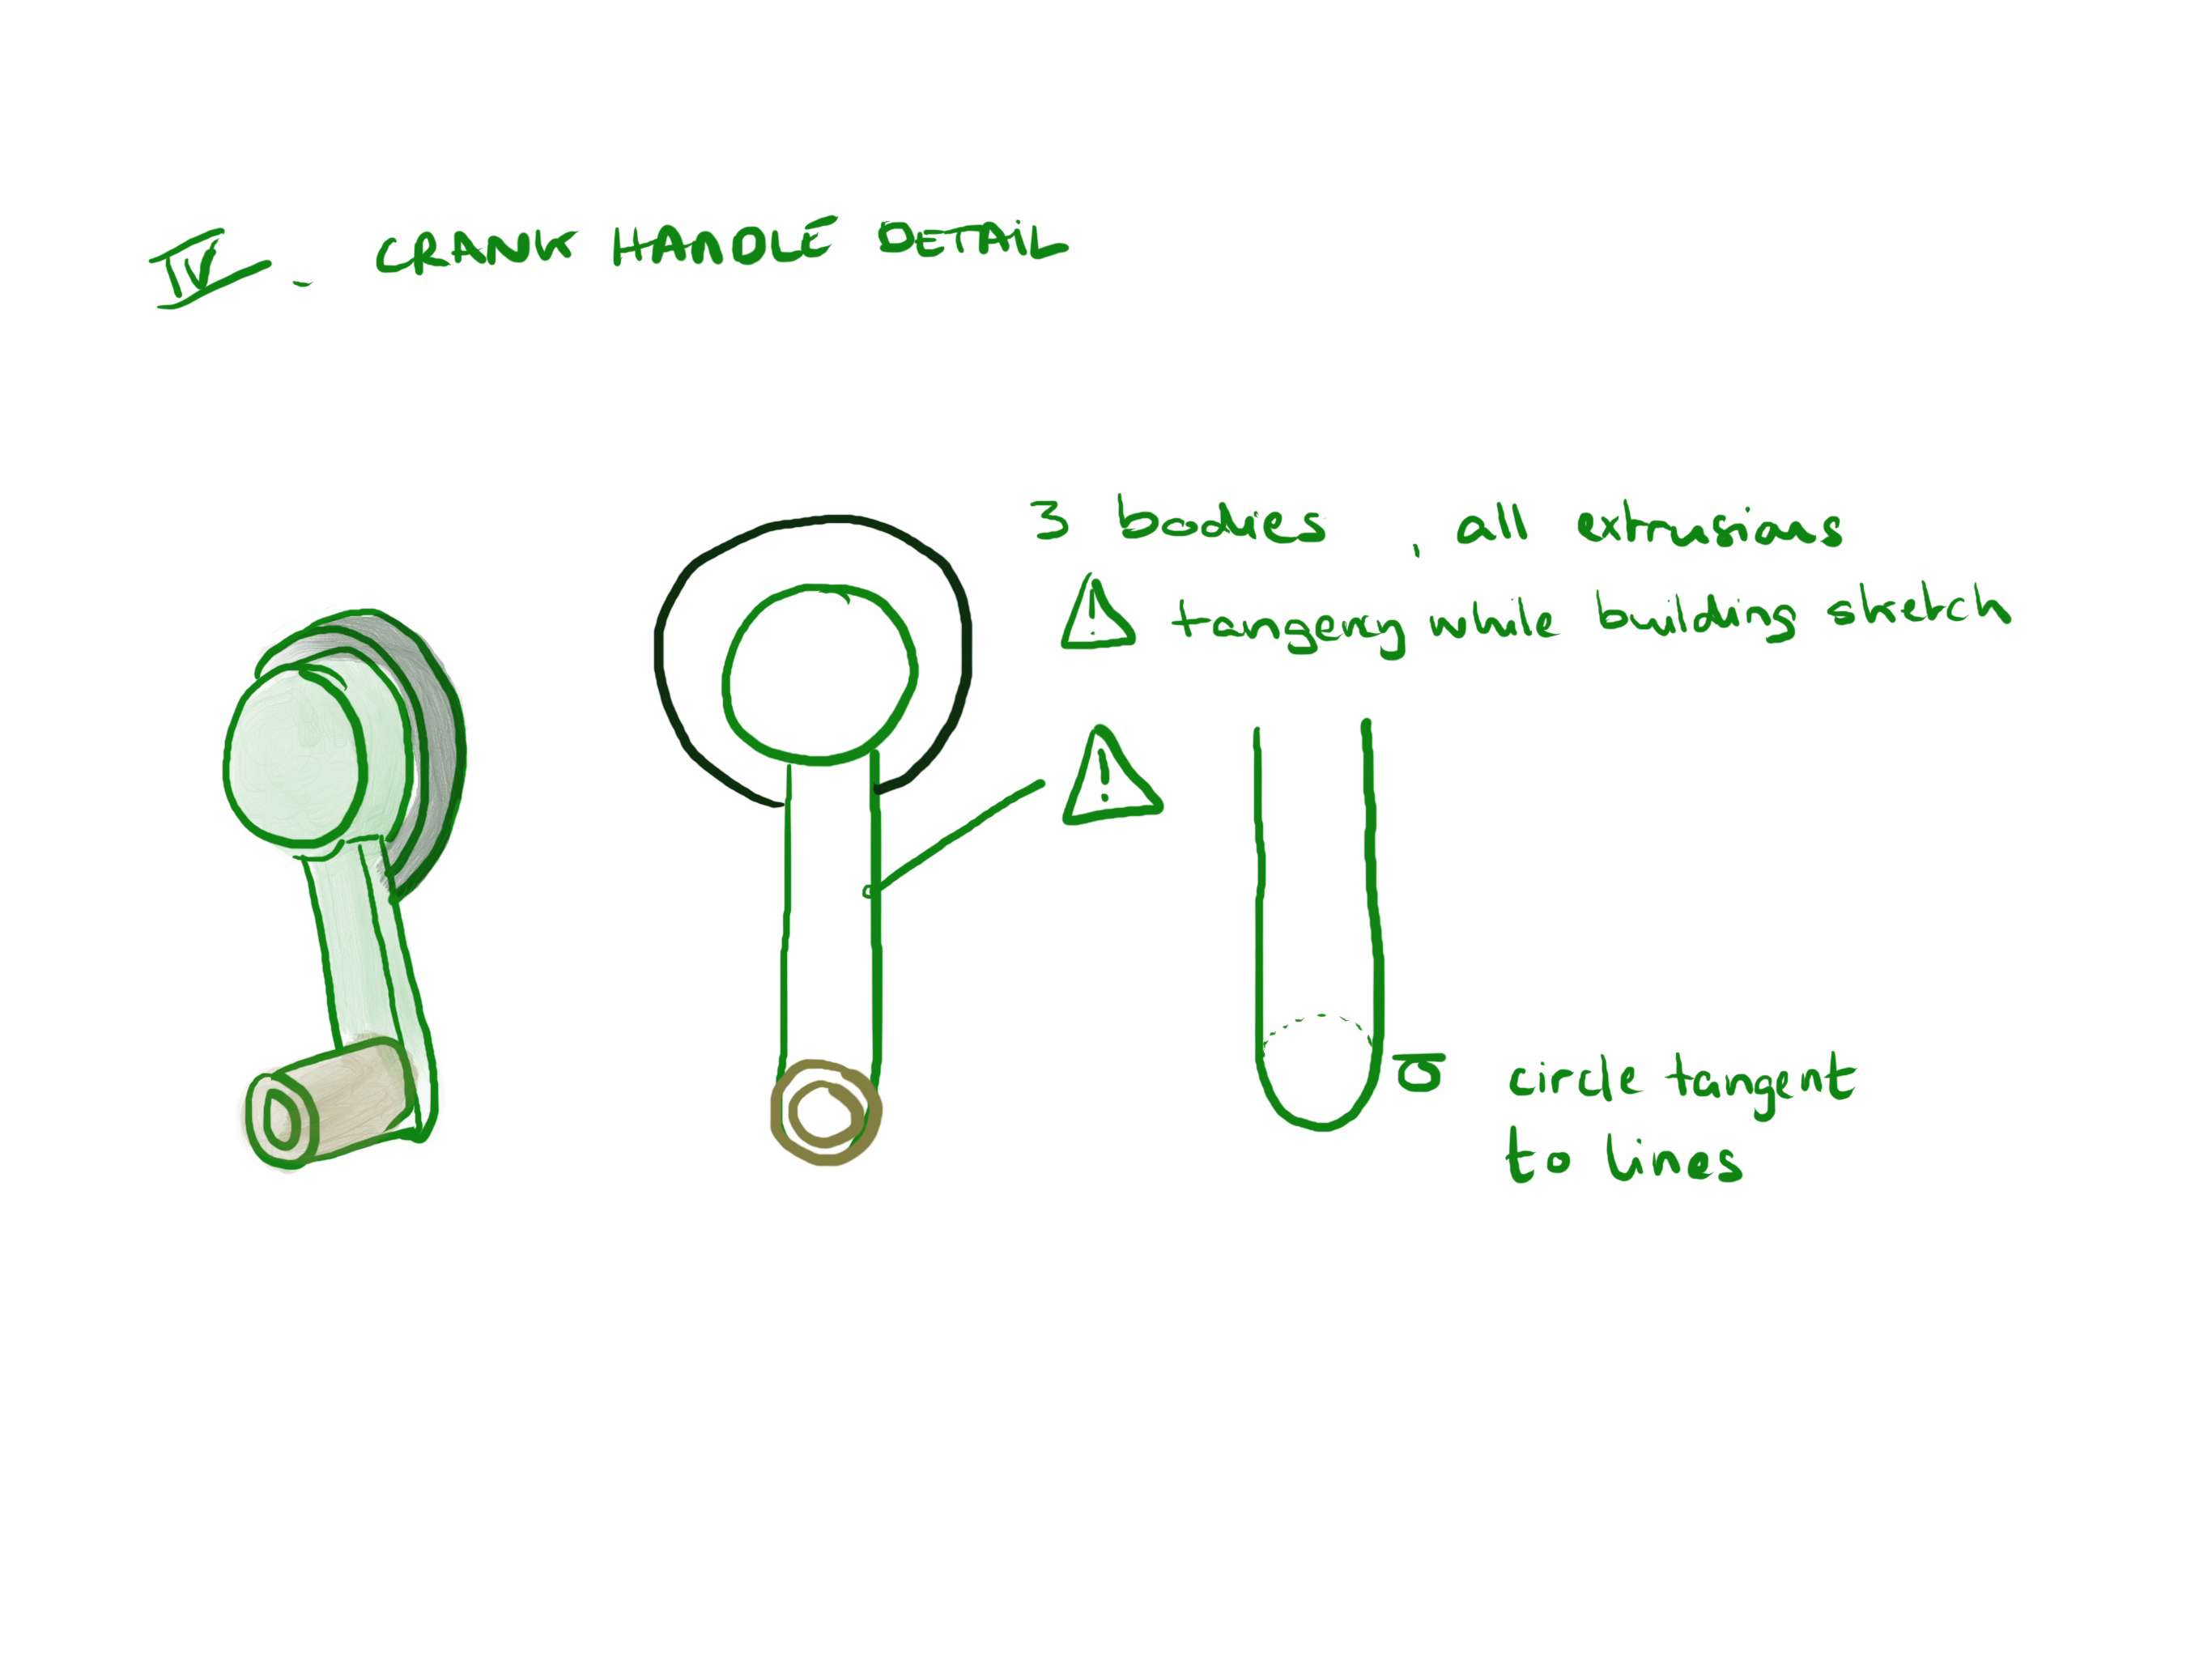 IV - CRANK HANDLE DETAIL
3 bodies , all extrusions
! tangency while building sketch
!
circle tangent
to lines